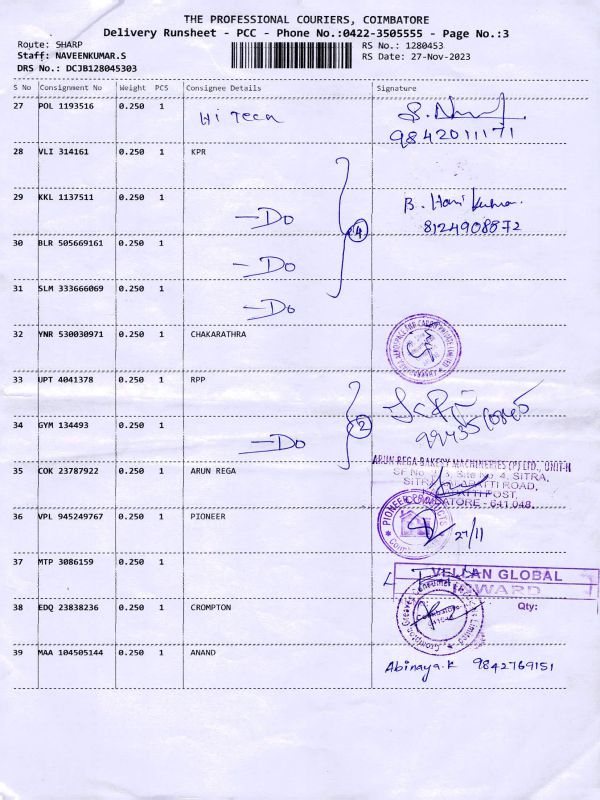 THE PROFESSIONAL COURIERS, COIMBATORE
Delivery Runsheet - PCC - Phone No.:0422-3505555 - Page No.:3
Route: SHARP
RS No.: 1280453
Staff: NAVEENKUMAR.S
RS Date: 27-Nov-2023
DRS No.: DCJB128045303
S No Consignment No Weight PCS Consignee Details Signature
27 POL 1193516 0.250 1 Hi Tech
9842011171
28 VLI 314161 0.250 1 KPR
29 KKL 1137511 0.250 1 -Do B. Hari Kumar.
8124908872
4
30 BLR 505669161 0.250 1 -Do
31 SLM 333666069 0.250 1 -Do
32 YNR 530030971 0.250 1 CHAKARATHRA
33 UPT 4041378 0.250 1 RPP
2
34 GYM 134493 0.250 1 -Do
35 COK 23787922 0.250 1 ARUN REGA
ARUN REGA BAKERY MACHINERIES (P) LTD., UNIT-II
SITRA,
ROAD,
POST,
641 048.
36 VPL 945249767 0.250 1 PIONEER
PIONEER PRODUCTS
27/11
37 MTP 3086159 0.250 1
VELLAN GLOBAL
38 EDQ 23838236 0.250 1 CROMPTON
Qty:
39 MAA 104505144 0.250 1 ANAND
Abinaya.K 9842769151